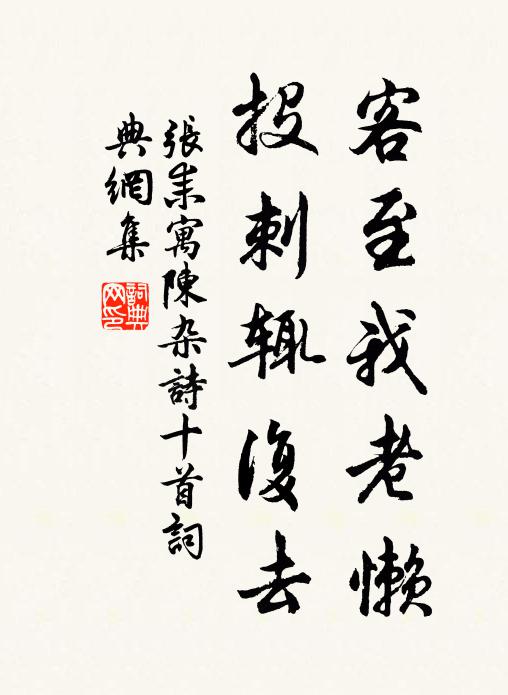 客至我老懒
投刺辄復去
張耒寓陳杂詩十首詞
典網集
詞典
网印